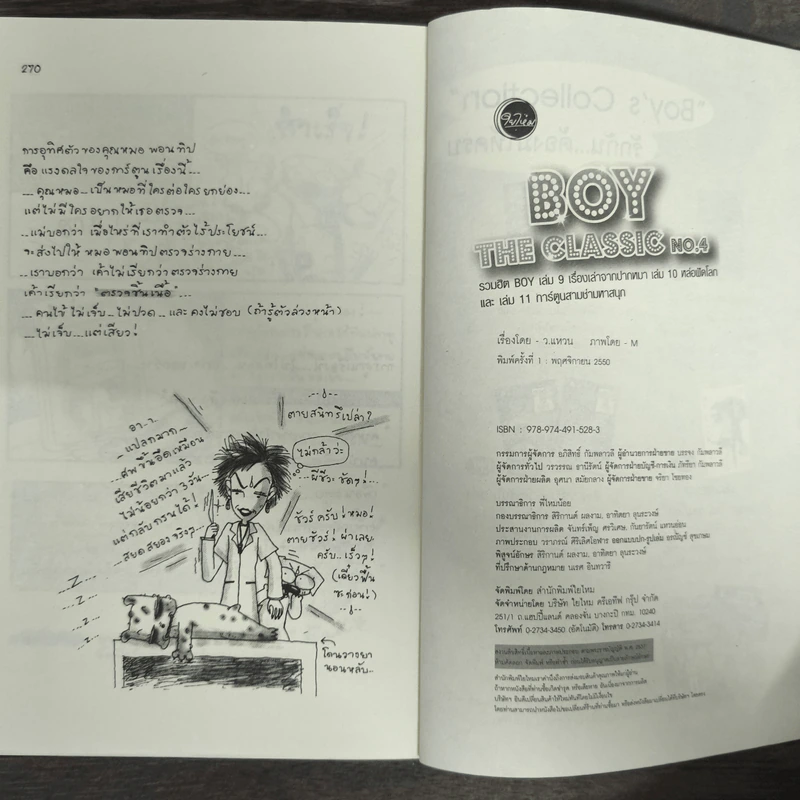 270
การอุทิศตัวของคุณหมอ พอนทิป
คือ แรงดลใจของการ์ตูนเรื่องนี้....
.... คุณหมอ... เป็นหมอที่ใครต่อใครยกย่อง....
แต่ไม่มีใครอยากให้เธอตรวจ....
.... แม่บอกว่า เมื่อไหร่ที่เราทำตัวไร้ประโยชน์....
จะส่งไปให้ หมอพอนทิปตรวจร่างกาย....
.... เราบอกว่า เค้าไม่เรียกว่าตรวจร่างกาย
เค้าเรียกว่า "ตรวจชิ้นเนื้อ"....
.... คนไข้ ไม่เจ็บ... ไม่ปวด... และ คงไม่ชอบ (ถ้ารู้ตัวล่วงหน้า)
.... ไม่เจ็บ.... แต่เสียว!
ตายสนิทรึเปล่า?
ไม่กล้าว่ะ
อา...
แปลกมาก...
ศพขึ้นอืดเหมือน
เสียชีวิตมาแล้ว
ไม่น้อยกว่า 3 วัน...
แต่กลับกรนได้!
สยดสยองจริงๆ...
...ผีชีวะ ชัดๆ!..
ชัวร์ ครับ! หมอ!
ตายชัวร์! ผ่าเลย
ครับ.. เร็วๆ!
(เดี๋ยวฟื้น
ซะก่อน!)
Z...
Z...
Z...
Z...
โดนวางยา
นอนหลับ..
"Boy's Collection"
ใยไหม
BOY
THE CLASSIC NO.4
รวมฮิต BOY เล่ม 9 เรื่องเล่าจากปากหมา เล่ม 10 หล่อผิดโลก
และ เล่ม 11 การ์ตูนสามช่ามหาสนุก
เรื่องโดย - ว.แหวน ภาพโดย - M
พิมพ์ครั้งที่ 1 : พฤศจิกายน 2550
ISBN : 978-974-491-528-3
กรรมการผู้จัดการ อภิสิทธิ์ กัมพลาวลี ผู้อำนวยการฝ่ายขาย บรรจง กัมพลาวลี
ผู้จัดการทั่วไป วรวรรณ ธานีรัตน์ ผู้จัดการฝ่ายบัญชี-การเงิน ภัทริยา กัมพลาวลี
ผู้จัดการฝ่ายผลิต อุศนา สมัยกลาง ผู้จัดการฝ่ายขาย จริยา ไชยทอง
บรรณาธิการ พี่ไหมน้อย
กองบรรณาธิการ สิริกานต์ ผลงาม, อาทิตยา ลุนระวงษ์
ประสานงานการผลิต จันทร์เพ็ญ ศรวิเศษ, กันยารัตน์ แหวนอ่อน
ภาพประกอบ วราภรณ์ ศิริเลิศโอฬาร ออกแบบปก-รูปเล่ม อรณัญช์ สุขเกษม
พิสูจน์อักษร สิริกานต์ ผลงาม, อาทิตยา ลุนระวงษ์
ที่ปรึกษาด้านกฎหมาย นเรศ อินทวารี
จัดพิมพ์โดย สำนักพิมพ์ใยไหม
จัดจำหน่ายโดย บริษัท ใยไหม ครีเอทีฟ กรุ๊ป จำกัด
251/1 ถ.แฮปปี้แลนด์ คลองจั่น บางกะปิ กทม. 10240
โทรศัพท์ 0-2734-3450 (อัตโนมัติ) โทรสาร 0-2734-3414
สำนักพิมพ์ใยไหมเราคำนึงถึงการส่งมอบสินค้าคุณภาพให้แก่ผู้อ่าน
ถ้าหากหนังสือที่ท่านซื้อไปชำรุด หรือเสียหาย อันเนื่องมาจากการผลิต
บริษัทฯ ยินดีเปลี่ยนสินค้าให้ใหม่ทันทีโดยไม่มีเงื่อนไข
โดยท่านสามารถนำหนังสือไปขอเปลี่ยนได้ที่ร้านที่ท่านซื้อมา หรือส่งหนังสือมาเปลี่ยนได้ที่บริษัทฯ โดยตรง